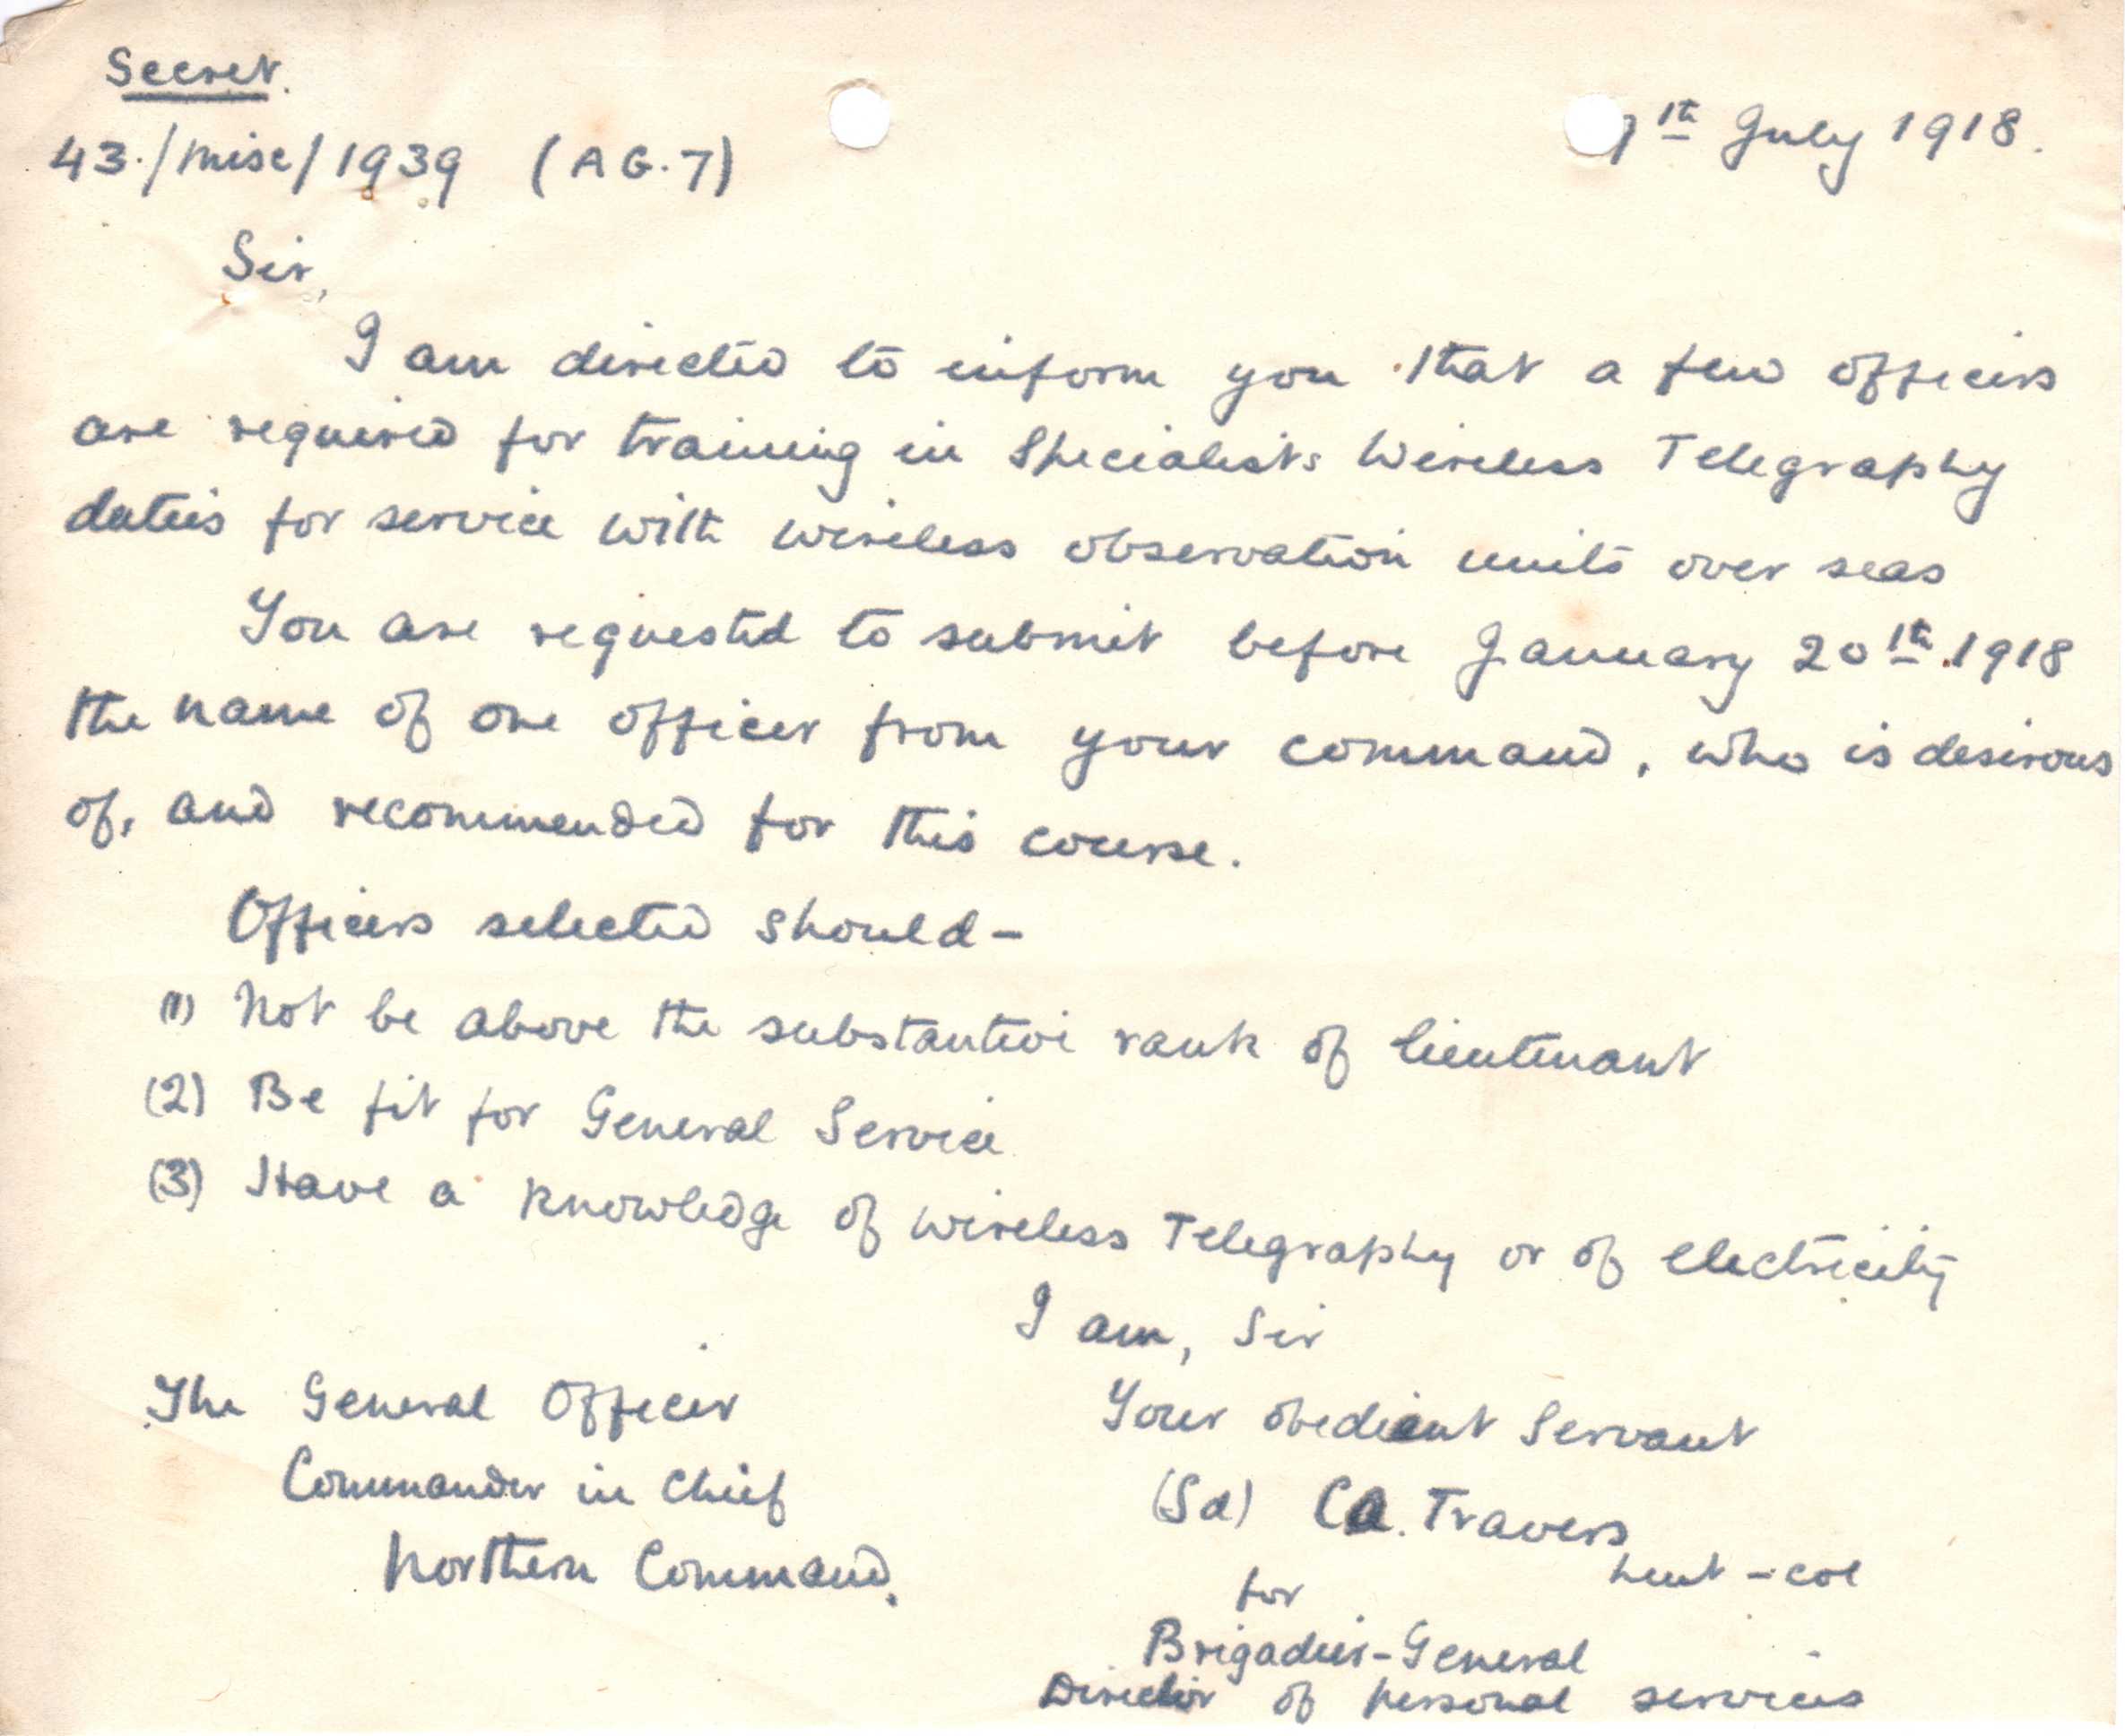 Secret.
43./misc/1939 (AG.7)
7th July 1918.
Sir,
I am directed to inform you that a few officers
are required for training in Specialists Wireless Telegraphy
duties for service with wireless observation units over seas
You are requested to submit before January 20th 1918
the name of one officer from your command, who is desirous
of, and recommended for this course.
Officers selected should-
(1) Not be above the substantive rank of lieutenant
(2) Be fit for General Service
(3) Have a knowledge of wireless Telegraphy or of electricity
I am, Sir
Your obedient Servant
(Sd) CA. Travers
Lieut-col
for
Brigadier-General
Director of personal services
The General Officer
Commander in Chief
Northern Command.